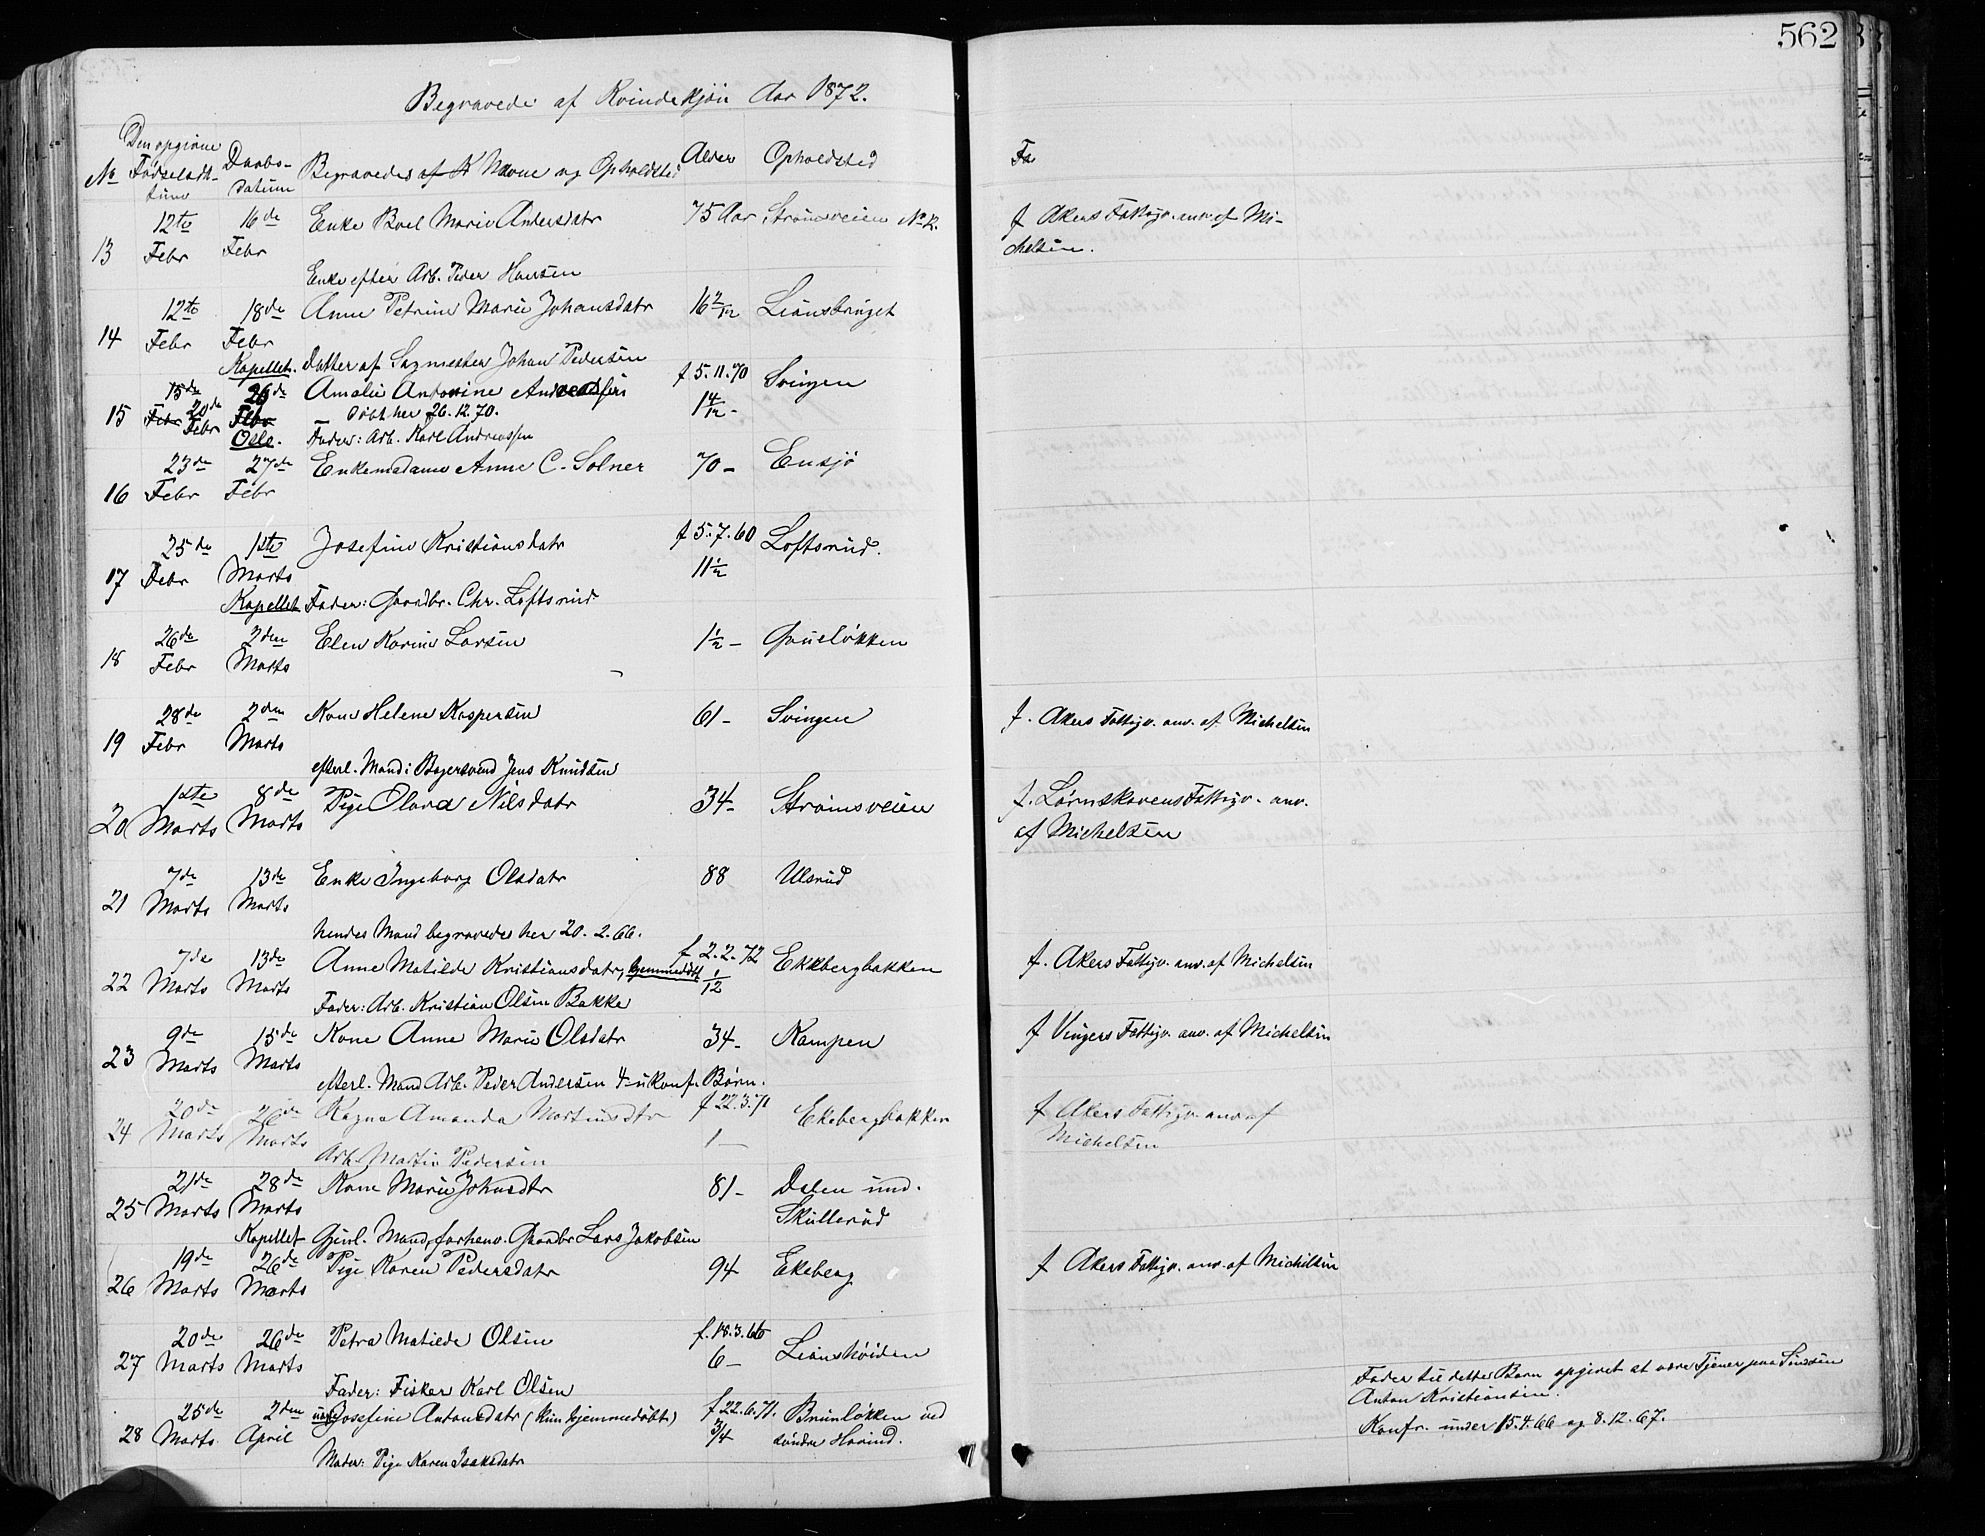 562
Begravede af Kvindekjøn Aar 1872.
No Den opgivne Fødselsdatum Daabsdatum Begravedes af K Navne og Opholdsted Alder Opholdsted Fa
12te 16de Enke Boel Marie Andersdatr 75 Aar Strømsveien No 12. f Akers Fattigv. anv. af Mi-
13 Febr Febr chelsen.
Enke efter Arb. Peder Hansen
12te 18de Anne Petrine Marie Johansdatr 16 2/12 Liansbruget
14 Febr Febr
Kapellet. Datter af Sagmester Johan Pedersen
15de 26de Amalie Antonine Andreassen f 5.11.70 Svingen
15 Febr 20de Febr Febr Døbt her 26.12.70. 1 4/12 -
Oslo. Fader: Arb. Karl Andreassen
23de 27de Enkemadame Anne C. Solner 70 - Ensjø
16 Febr Febr
25de 1ste Josefine Kristiansdatr f 5.7.60 Loftsrud.
17 Febr Marts 11 1/2
Kapellet Fader: Gaardbr. Chr. Loftsrud
26de 2den Elen Karine Larsen 1 1/2 - Grusløkken
18 Febr Marts
28de 2den Kone Helene Kaspersen 61 - Svingen f. Akers Fattigv. anv. af Michelsen
19 Febr Marts
efterl. Mand: Bagersvend Jens Knudsen
1ste 8de Pige Olava Nilsdatr 34 - Strømsveien f. Lørnskovens Fattigv. anv.
20 Marts Marts af Michelsen
7de 13de Enke Ingeborg Olsdatr 88 Ulsrud
21 Marts Marts
hendes Mand begravedes her 20.2.66.
7de 13de Anne Matilde Kristiansdatr, hjemmedøbt f. 2.2.72 Ekebergbakken f. Akers Fattigv. anv. af Michelsen
22 Marts Marts 1/12
Fader: Arb. Kristian Olsen Bakke
9de 15de Kone Anne Marie Olsdatr 34 - Kampen f Vingers Fattigv. anv. af Michelsen
23 Marts Marts
efterl. Mand Arb. Peder Andersen 4 ukonf. Børn.
20de 26de Ragna Amanda Martinsdtr f 22.3.71 Ekebergbakken f Akers Fattigv. anv. af
24 Marts Marts 1 - Michelsen
Arb. Martin Pedersen
21de 28de Kone Marie Johnsdtr 81 - Dalen und.
25 Marts Marts Skullerud
Kapellet Gjenl. Mand, forhenv. Gaardbr Lars Jakobsen
19de 26de Pige Karen Pedersdatr 94 Ekeberg f Akers Fattigv. anv. af Michelsen
26 Marts Marts
20de 26de Petra Matilde Olsen f. 18.3.66 Lianshøiden
27 Marts Marts 6 -
Fader: Fisker Karl Olsen
25de 2den uægte Josefine Antonsdatr (kun hjemmedøbt) f 22.6.71. Brunløkken ved
28 Marts. April 3/4 søndre Hovind.
Moder: Pige Karen Isaksdatr
Fader til dette Barn opgivet at være Tjener paa Sinsen
Anton Kristiansen.
Konfr. under 15.4.66 og 8.12.67.